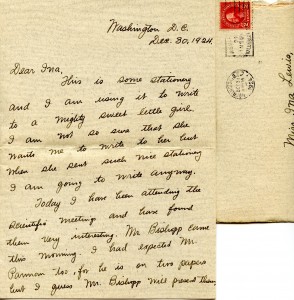 Washington D.C.
Dec. 30, 1924.
Dear Ina,
This is some stationery
and I am using it to write
to a mighty sweet little girl.
I am not so sure that she
wants me to write to her but
when she sent such nice stationery
I am going to write anyway.
Today I have been attending the
scientific meetings and have found
them very interesting. Mr. Bishopp came
this morning. I had expected Mr.
Parman too, for he is on two papers
but I guess Mr. Bishopp will present them.
Miss Ina Lewis,